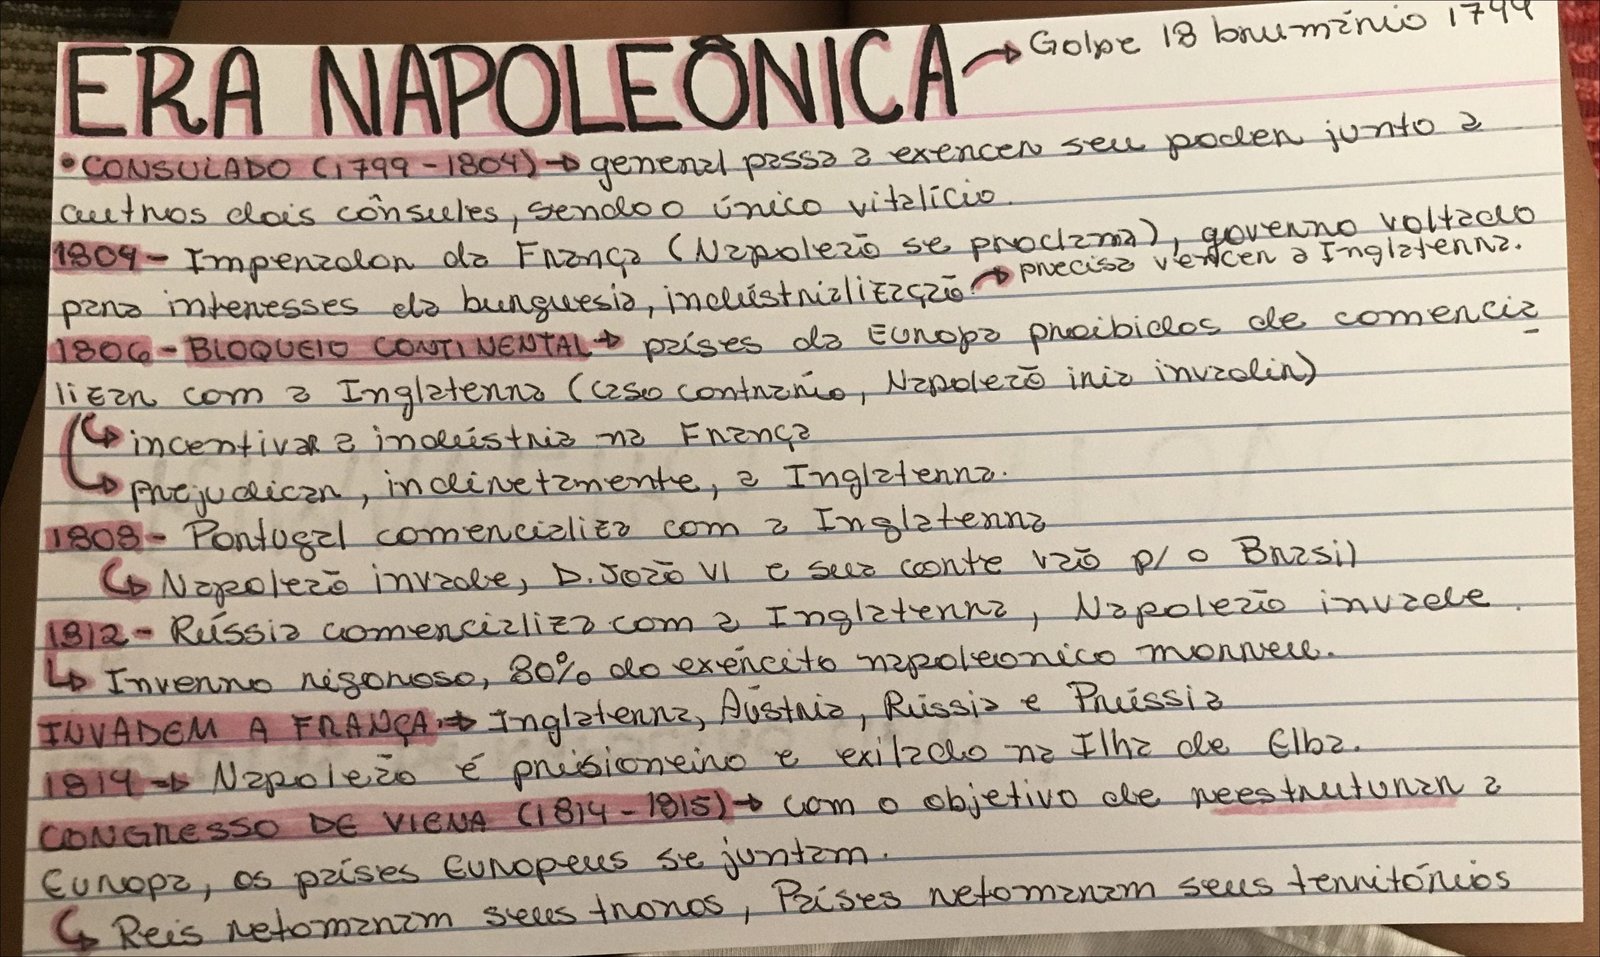 ERA NAPOLEÔNICA → Golpe 18 brumário 1799
• CONSULADO (1799 - 1804) → general passa a exercer seu poder junto a
outros dois cônsules, sendo o único vitalício.
1804 - Imperador da França (Napoleão se proclama), governo voltado
para interesses da burguesia, indústrialização. → precisa vencer a Inglaterra.
1806 - BLOQUEIO CONTINENTAL → países da Europa proibidos de comercia
lizar com a Inglaterra (caso contrário, Napoleão iria invadir)
↳ incentivar a indústria na França
↳ prejudicar, indiretamente, a Inglaterra.
1808 - Portugal comercializa com a Inglaterra
↳ Napoleão invade, D. João VI e sua corte vão p/ o Brasil
1812 - Rússia comercializa com a Inglaterra, Napoleão invade.
↳ Inverno rigoroso, 80% do exército napoleonico morreu.
INVADEM A FRANÇA → Inglaterra, Áustria, Rússia e Prússia
1814 → Napoleão é prisioneiro e exilado na Ilha de Elba.
CONGRESSO DE VIENA (1814 - 1815) → com o objetivo de reestruturar a
Europa, os países Europeus se juntam.
↳ Reis retomaram seus tronos, Países retomaram seus territórios